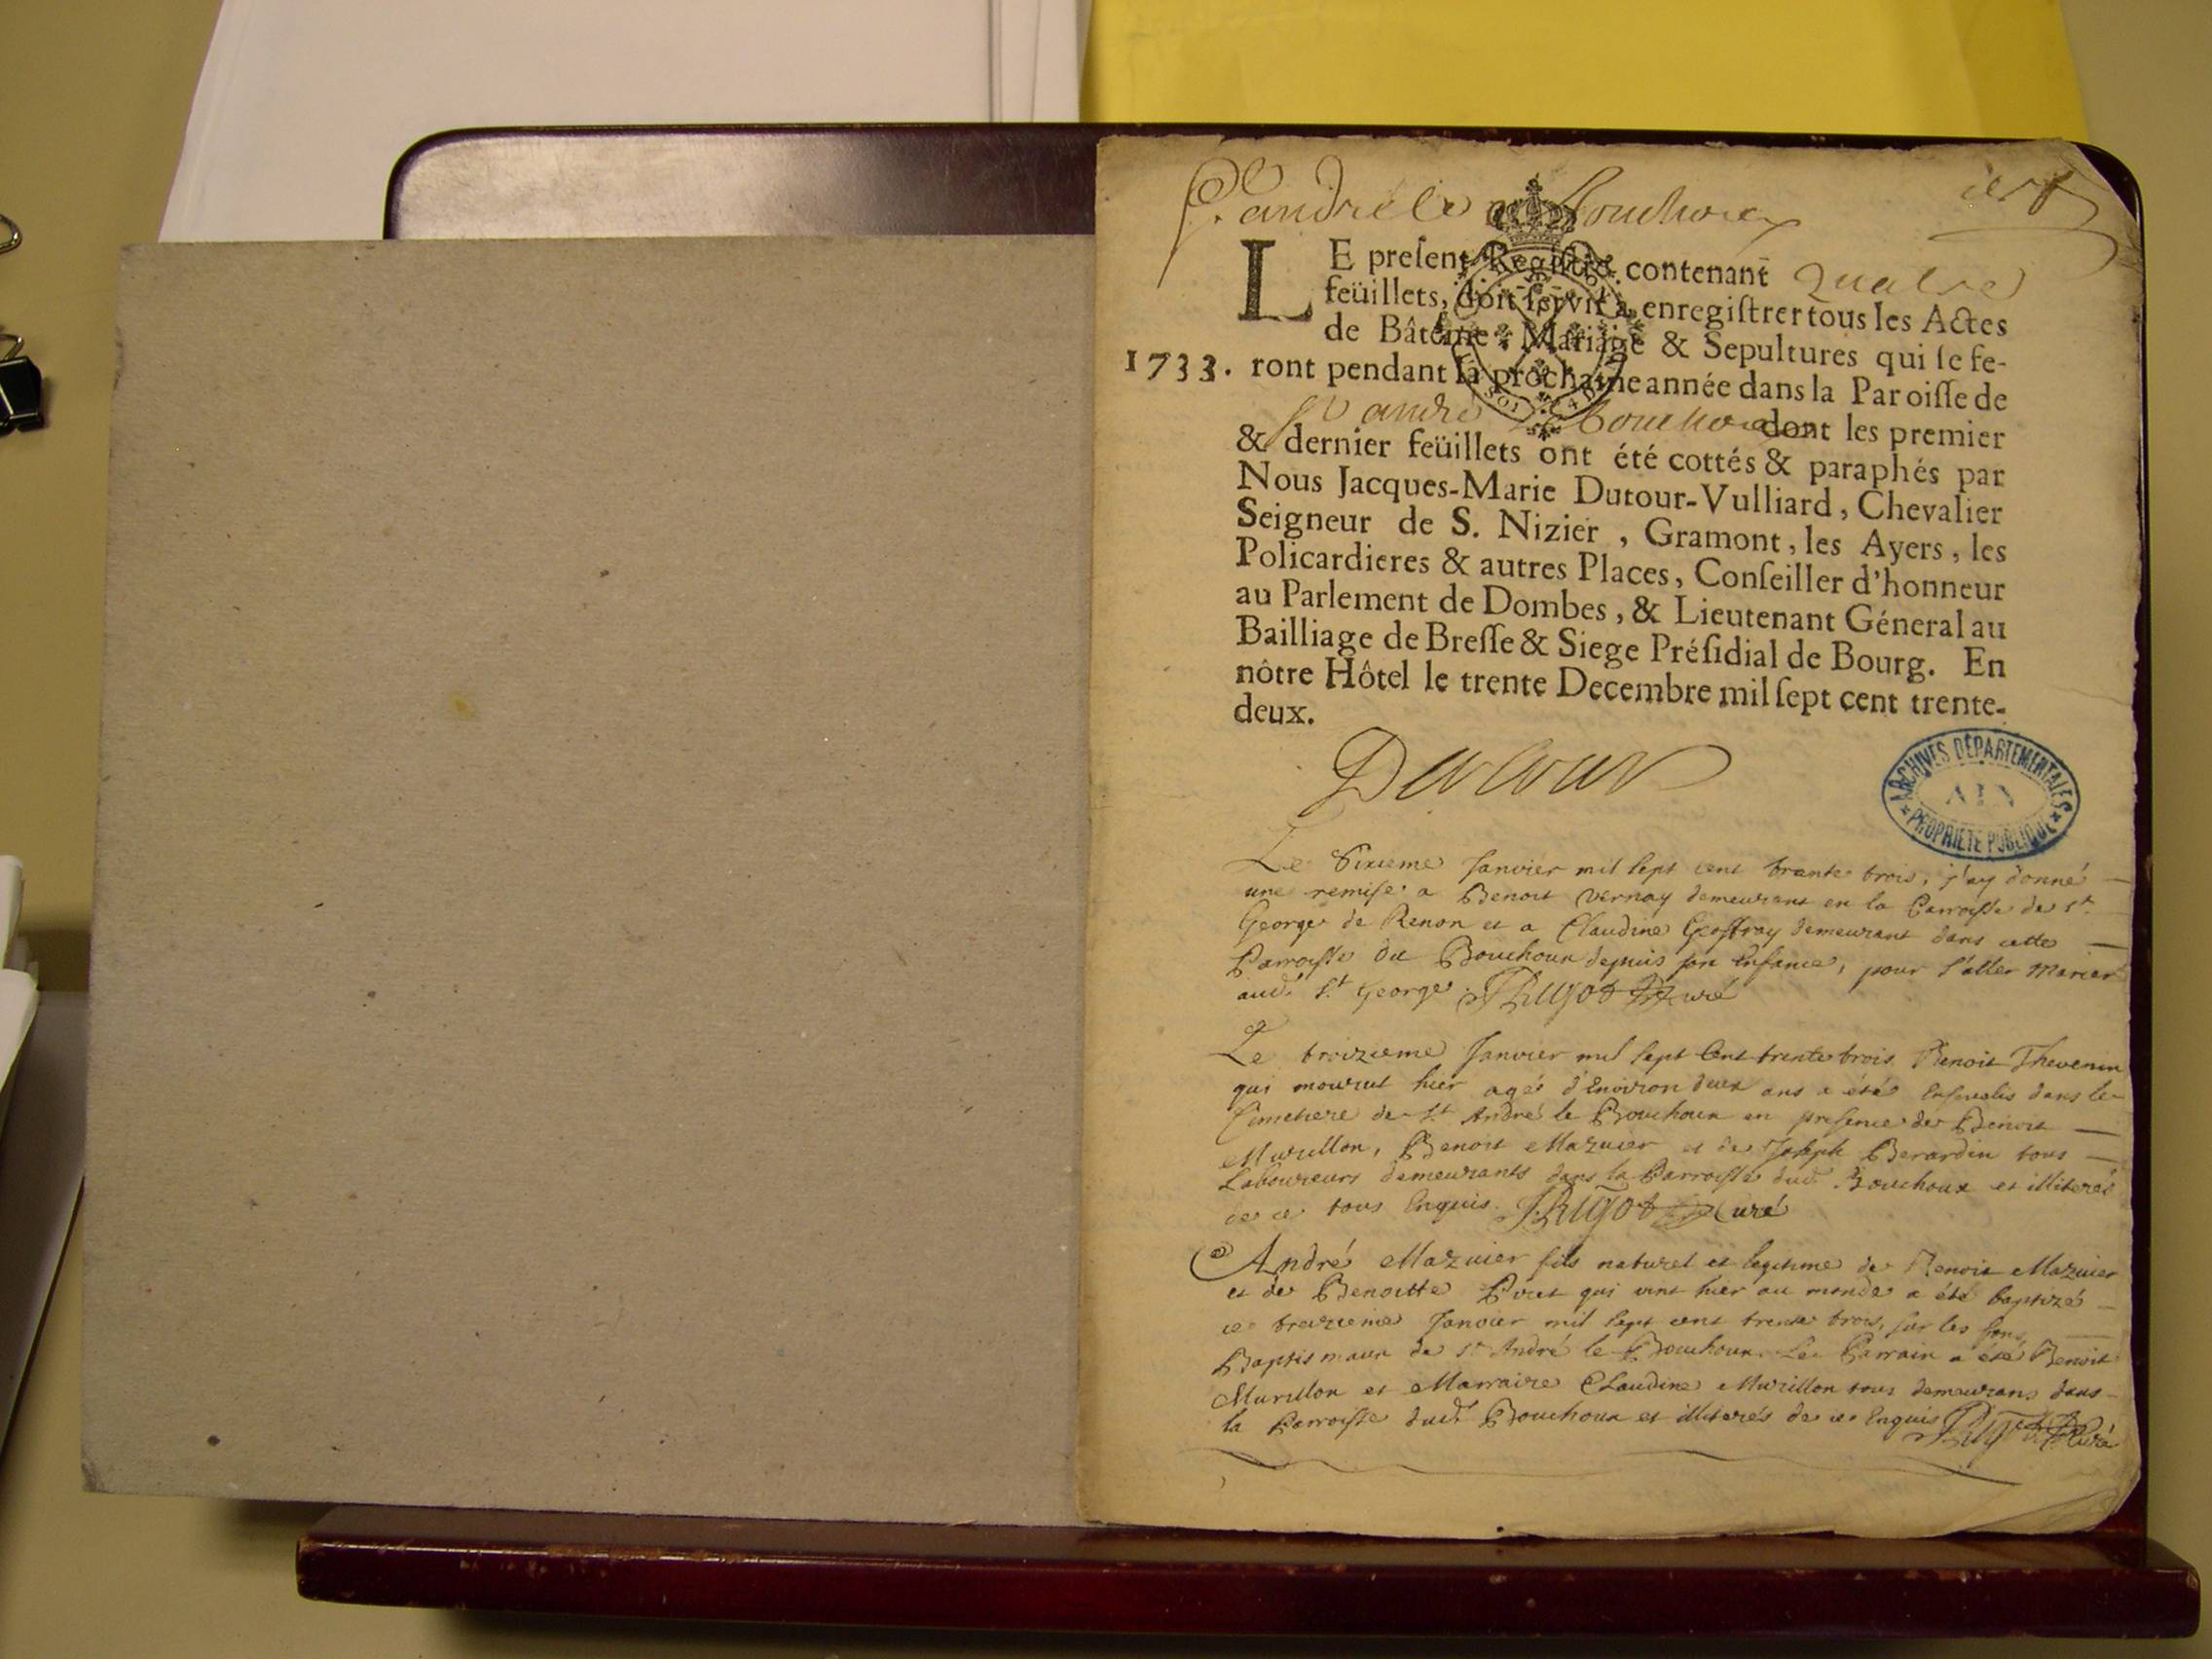 St. andré le Bouchoux
ier
LE preſent Regiſtre contenant quatre
feüillets, doit ſervir à enregiſtrer tous les Actes
de Bâtême, Mariage & Sepultures qui ſe fe-
1733. ront pendant la prochaine année dans la Paroiſſe de
St andré le Bouchoux dont les premier
& dernier feüillets ont été cottés & paraphés par
Nous Jacques-Marie Dutour-Vulliard, Chevalier
Seigneur de S. Nizier, Gramont, les Ayers, les
Policardieres & autres Places, Conſeiller d'honneur
au Parlement de Dombes, & Lieutenant Géneral au
Bailliage de Breſſe & Siege Préſidial de Bourg. En
nôtre Hôtel le trente Decembre mil ſept cent trente-
deux.
Dutour
ARCHIVES DÉPARTEMENTALES
AIN
PROPRIÉTÉ PUBLIQUE
Le Sixieme Janvier mil sept cent trante trois, j'ay donné
une remise a Benoit Vernay demeurant en la Parroisse de St.
George de Renon et a Claudine Geoffray demeurant dans cette
Parroisse du Bouchoux depuis son Enfance, pour s'aller marier
aud. St. George. Curé
Le troizieme Janvier mil sept Cent trente trois Benoit Thevenin
qui mourut hier agé d'Environ deux ans a été Ensevelis dans le
Cimetiere de St André le Bouchoux en presence de Benoit
Murillon, Benoit Mazuier et de Joseph Berardin tous
Laboureurs demeurants dans la Parroisse dud. Bouchoux et illiterés
de ce tous Enquis. Curé
André Mazuier fils naturel et legitime de Benoit Mazuier
et de Benoitte qui vint hier au monde a été baptizé
ce treizieme Janvier mil sept cent trente trois, sur les fons
Baptismaux de St André le Bouchoux. Le Parrain a été Benoit
Murillon et Marraire Claudine Murillon tous demeurans dans
la Parroisse dud. Bouchoux et illiterés de ce Enquis Curé